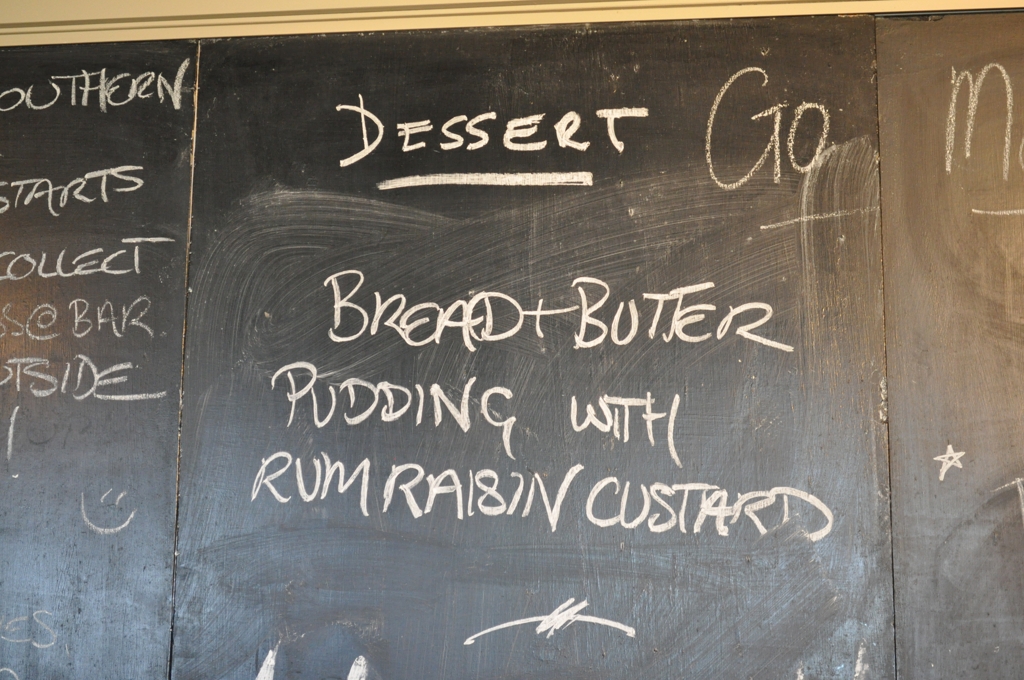 DESSERT
Go
BREAD + BUTTER
PUDDING WITH
RUM RAISIN CUSTARD
OUTHERN
STARTS
COLLECT
S@BAR
TSIDE